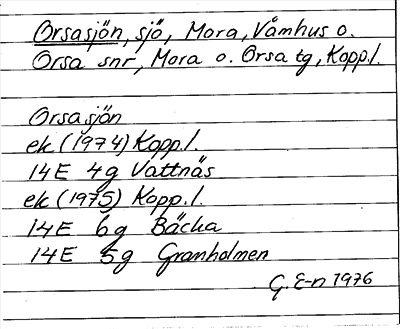 Orsasjön, sjö, Mora, Våmhus o.
Orsa snr, Mora o. Orsa tg, Kopp.l.
Orsasjön
ek (1974) Kopp.l.
14E 4g Vattnäs
ek (1975) Kopp.l.
14E 6g Bäcka
14E 5g Granholmen
G. E-n 1976